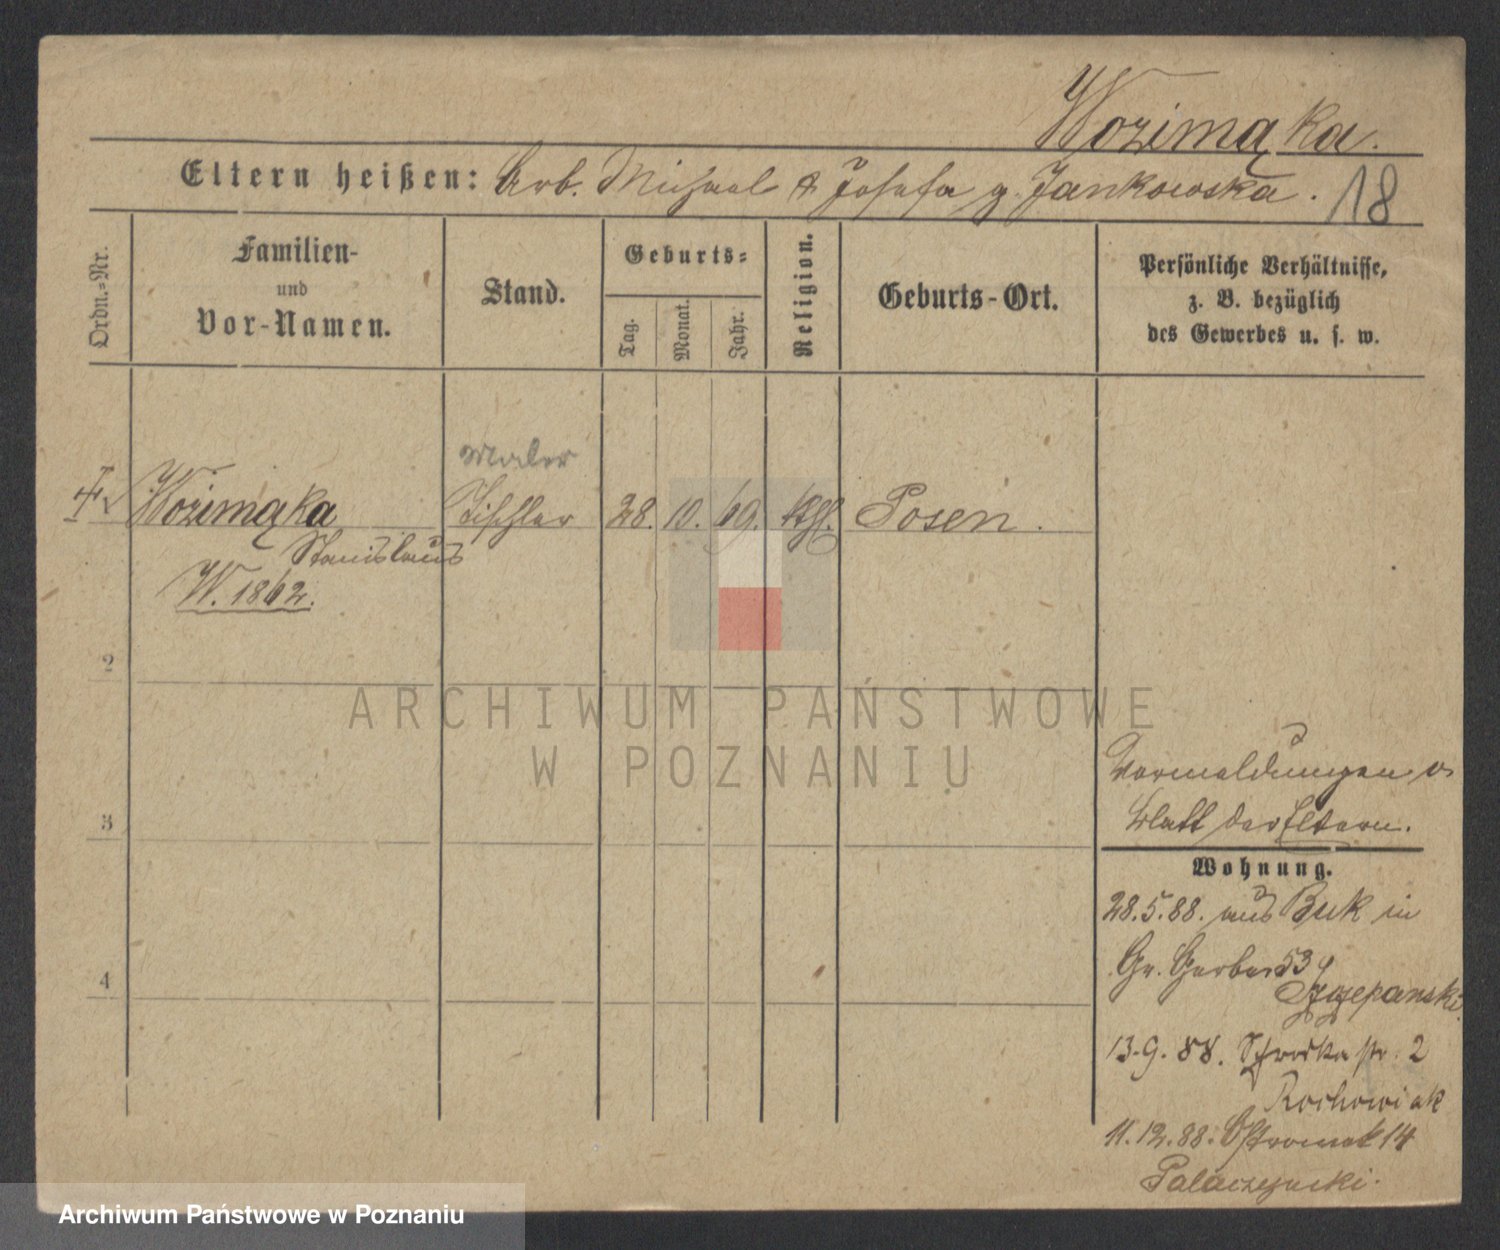 Wozimąka.
Eltern heißen: Arb. Michael & Josefa g. Jankowska. 18
Ordn.=Nr.
Familien-
und
Vor-Namen.
Stand.
Geburts=
Tag.
Monat.
Jahr.
Religion.
Geburts-Ort.
Persönliche Verhältnisse,
z. B. bezüglich
des Gewerbes u. s. w.
Maler
Wozimąka Tischler 28. 10. 69. kth. Posen.
Stanislaus
W. 1862.
2
3
4
Vormeldungen
Blatt der Eltern.
Wohnung.
28.5.88. aus Buk in
Gr. Gerber 53
Szczepanski
13.9.88. Schrodka str. 2
Rochowiak
11.12.88. Ostrowek 14
ARCHIWUM PAŃSTWOWE
W POZNANIU
Archiwum Państwowe w Poznaniu